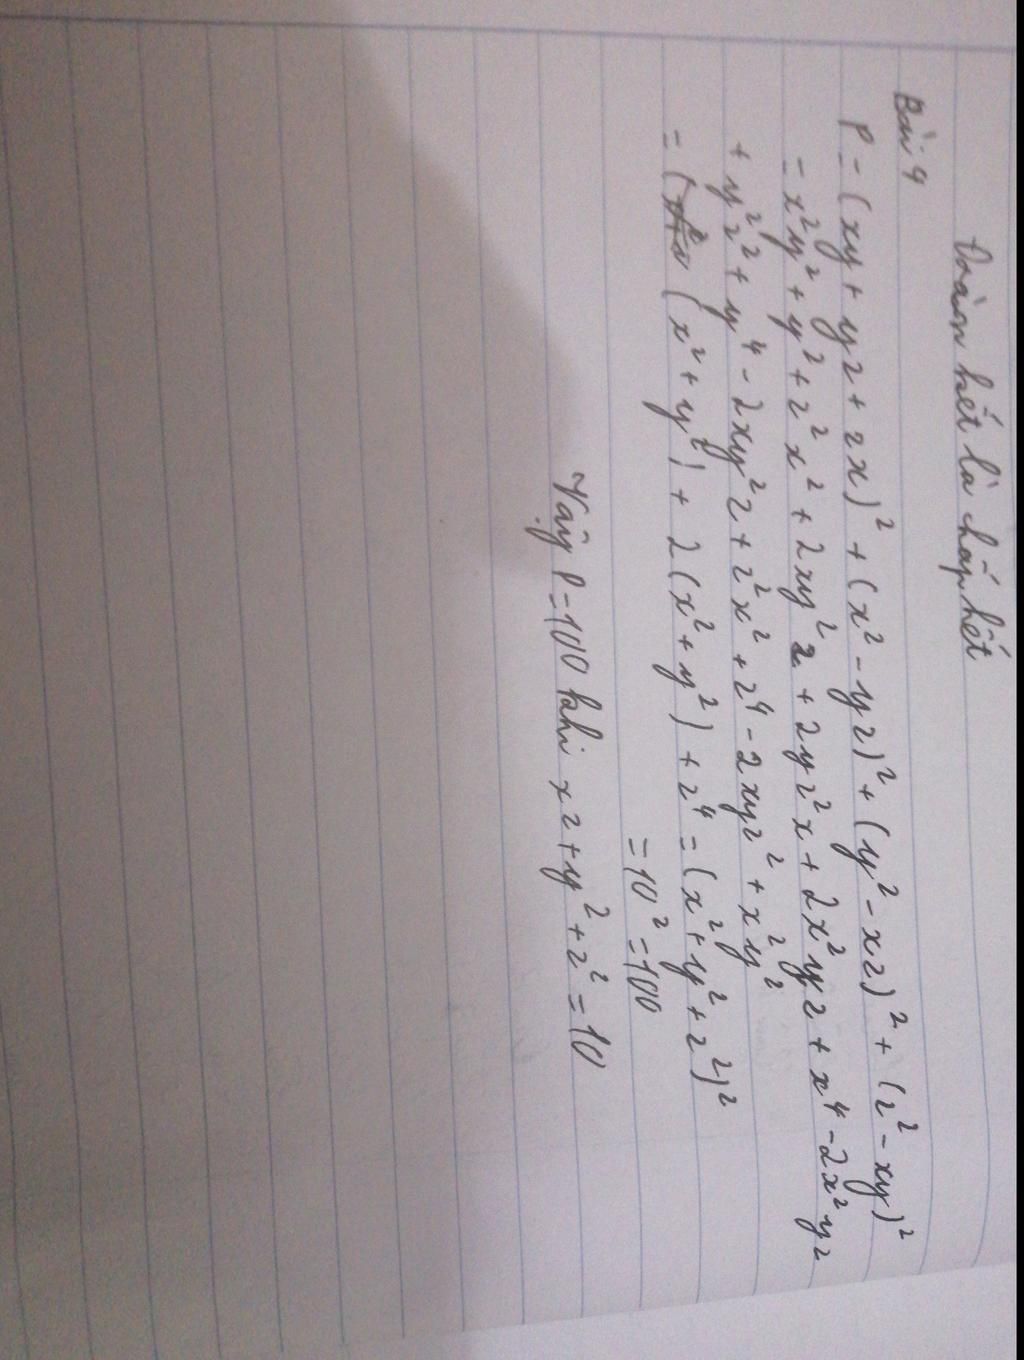 Đoàn kết là chấp hết
Bài 4
P = (xy + yz + zx)² + (x² - yz)² + (y² - xz)² + (z² - xy)²
= x²y² + y² + z² x² + 2xy² z + 2yz²x + 2x²yz + x⁴ - 2x²yz
+ y²z² + y⁴ - 2xy²z + z²x² + z⁴ - 2xyz² + x²y²
= (x² + y²) + 2(x² + y²) + z⁴ = (x² + y² + z²)²
= 10² = 100
Vậy P = 100 khi xz + y² + z² = 10